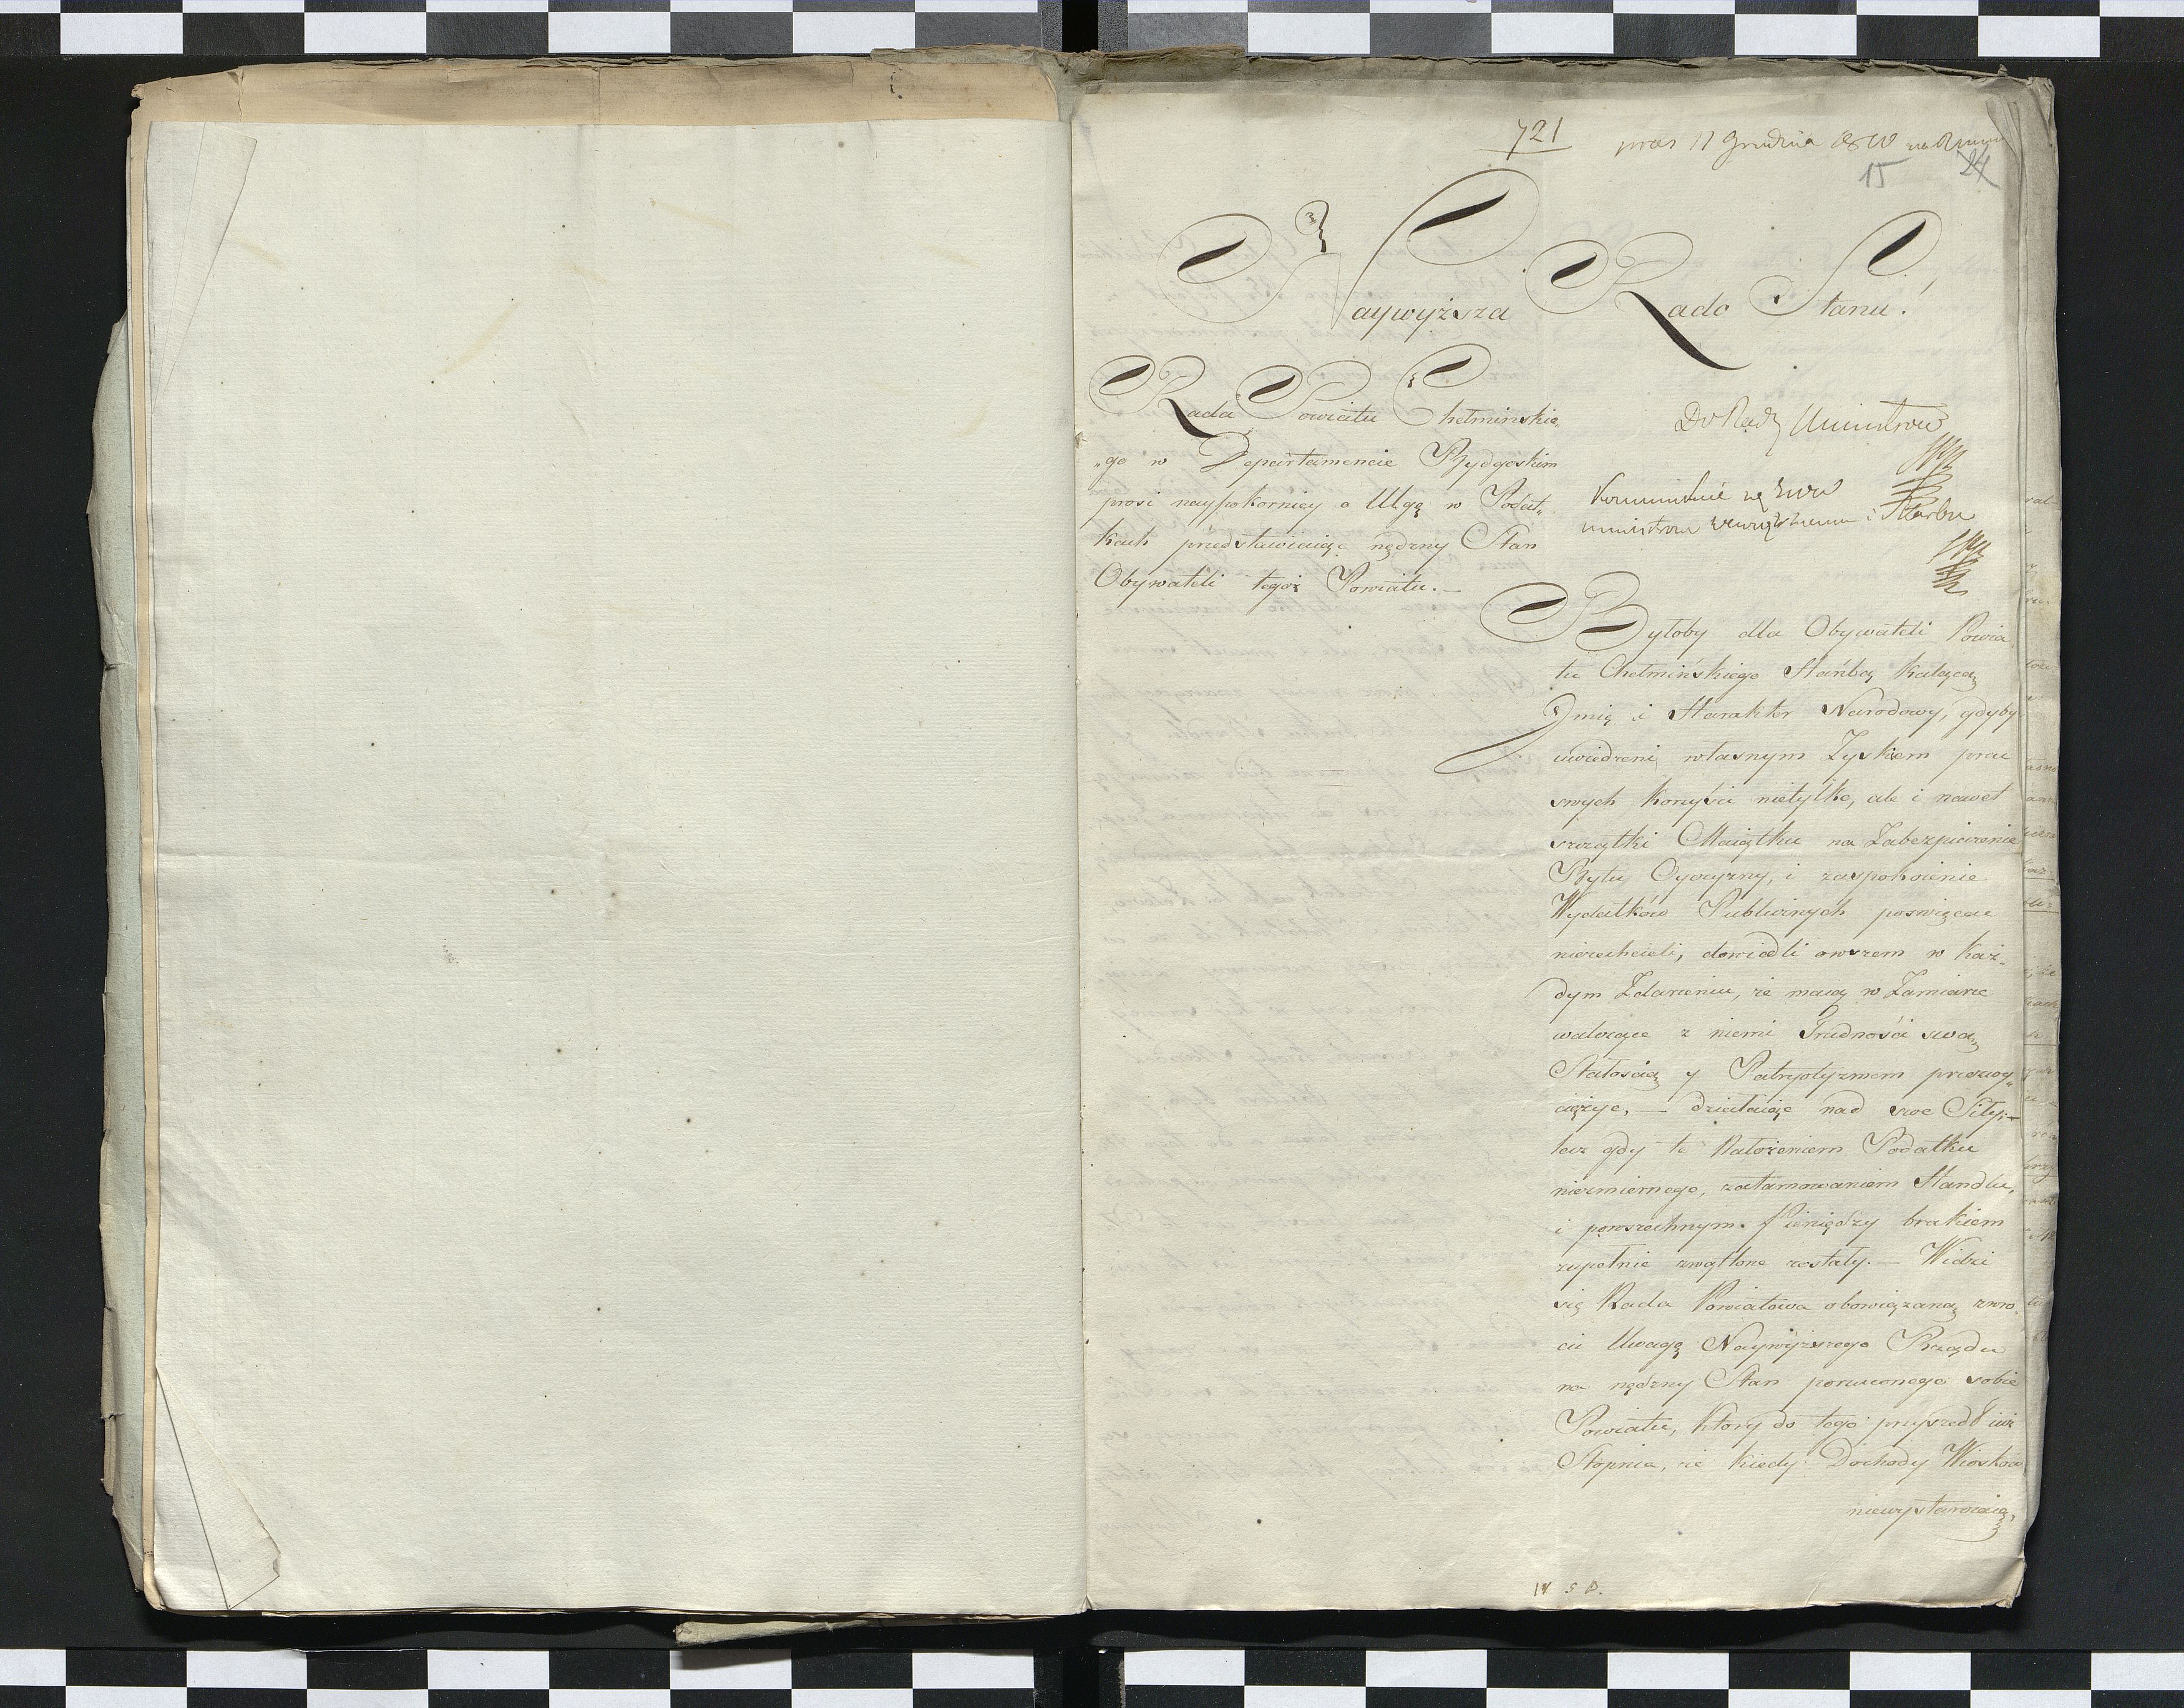 721
pras 17 Grudnia 1810
15 24
Naywyższa Rado Stanu!
Rada Powiatu Chełminskie„
„go w Departamencie Bydgoskim
prosi naypokorniey o Ulgę w Podat„
kach przedstawiaiąc nędzny Stan
Obywateli tegoż Powiatu.—
Do Rady Ministrow
ministrom i Skarbu
Byłoby dla Obywateli Powia
tu Chełmińskiego Hańbą kalaącą
Jmię i Harakter Narodowy, gdyby
uwiedzeni własnym Zyskiem prac
swych korzyści nietylko, ale i nawet
szczątki Maiątku na Zabezpieczenie
Bytu Oyczyzny, i zaspokoienie
Wydatków Publicznych poswięcac
niezechcieli, dowiedli owszem w każ-
dym Zdarzeniu, że maią w Zamiarze
walczące z niemi Trudności swą
Stałoscią y Patryotyzmem przezwy„
ciężyc, — działaiąc nad swe Siły;—
lecz gdy te Nałożeniem Podatku
niezmiernego, zatamowaniem Handlu,
i powszechnym Pieniędzy brakiem
zupełnie zwątlone zostały.— Widzi
się Rada Powiatowa obowiązaną zwro„
cic Uwagę Naywyższego Rządu
na nędzny Stan poruczonego sobie
Powiatu, ktory do tego przyszedł iuż
Stopnia, że kiedy Dochody Wiosków
niewystarczaią,